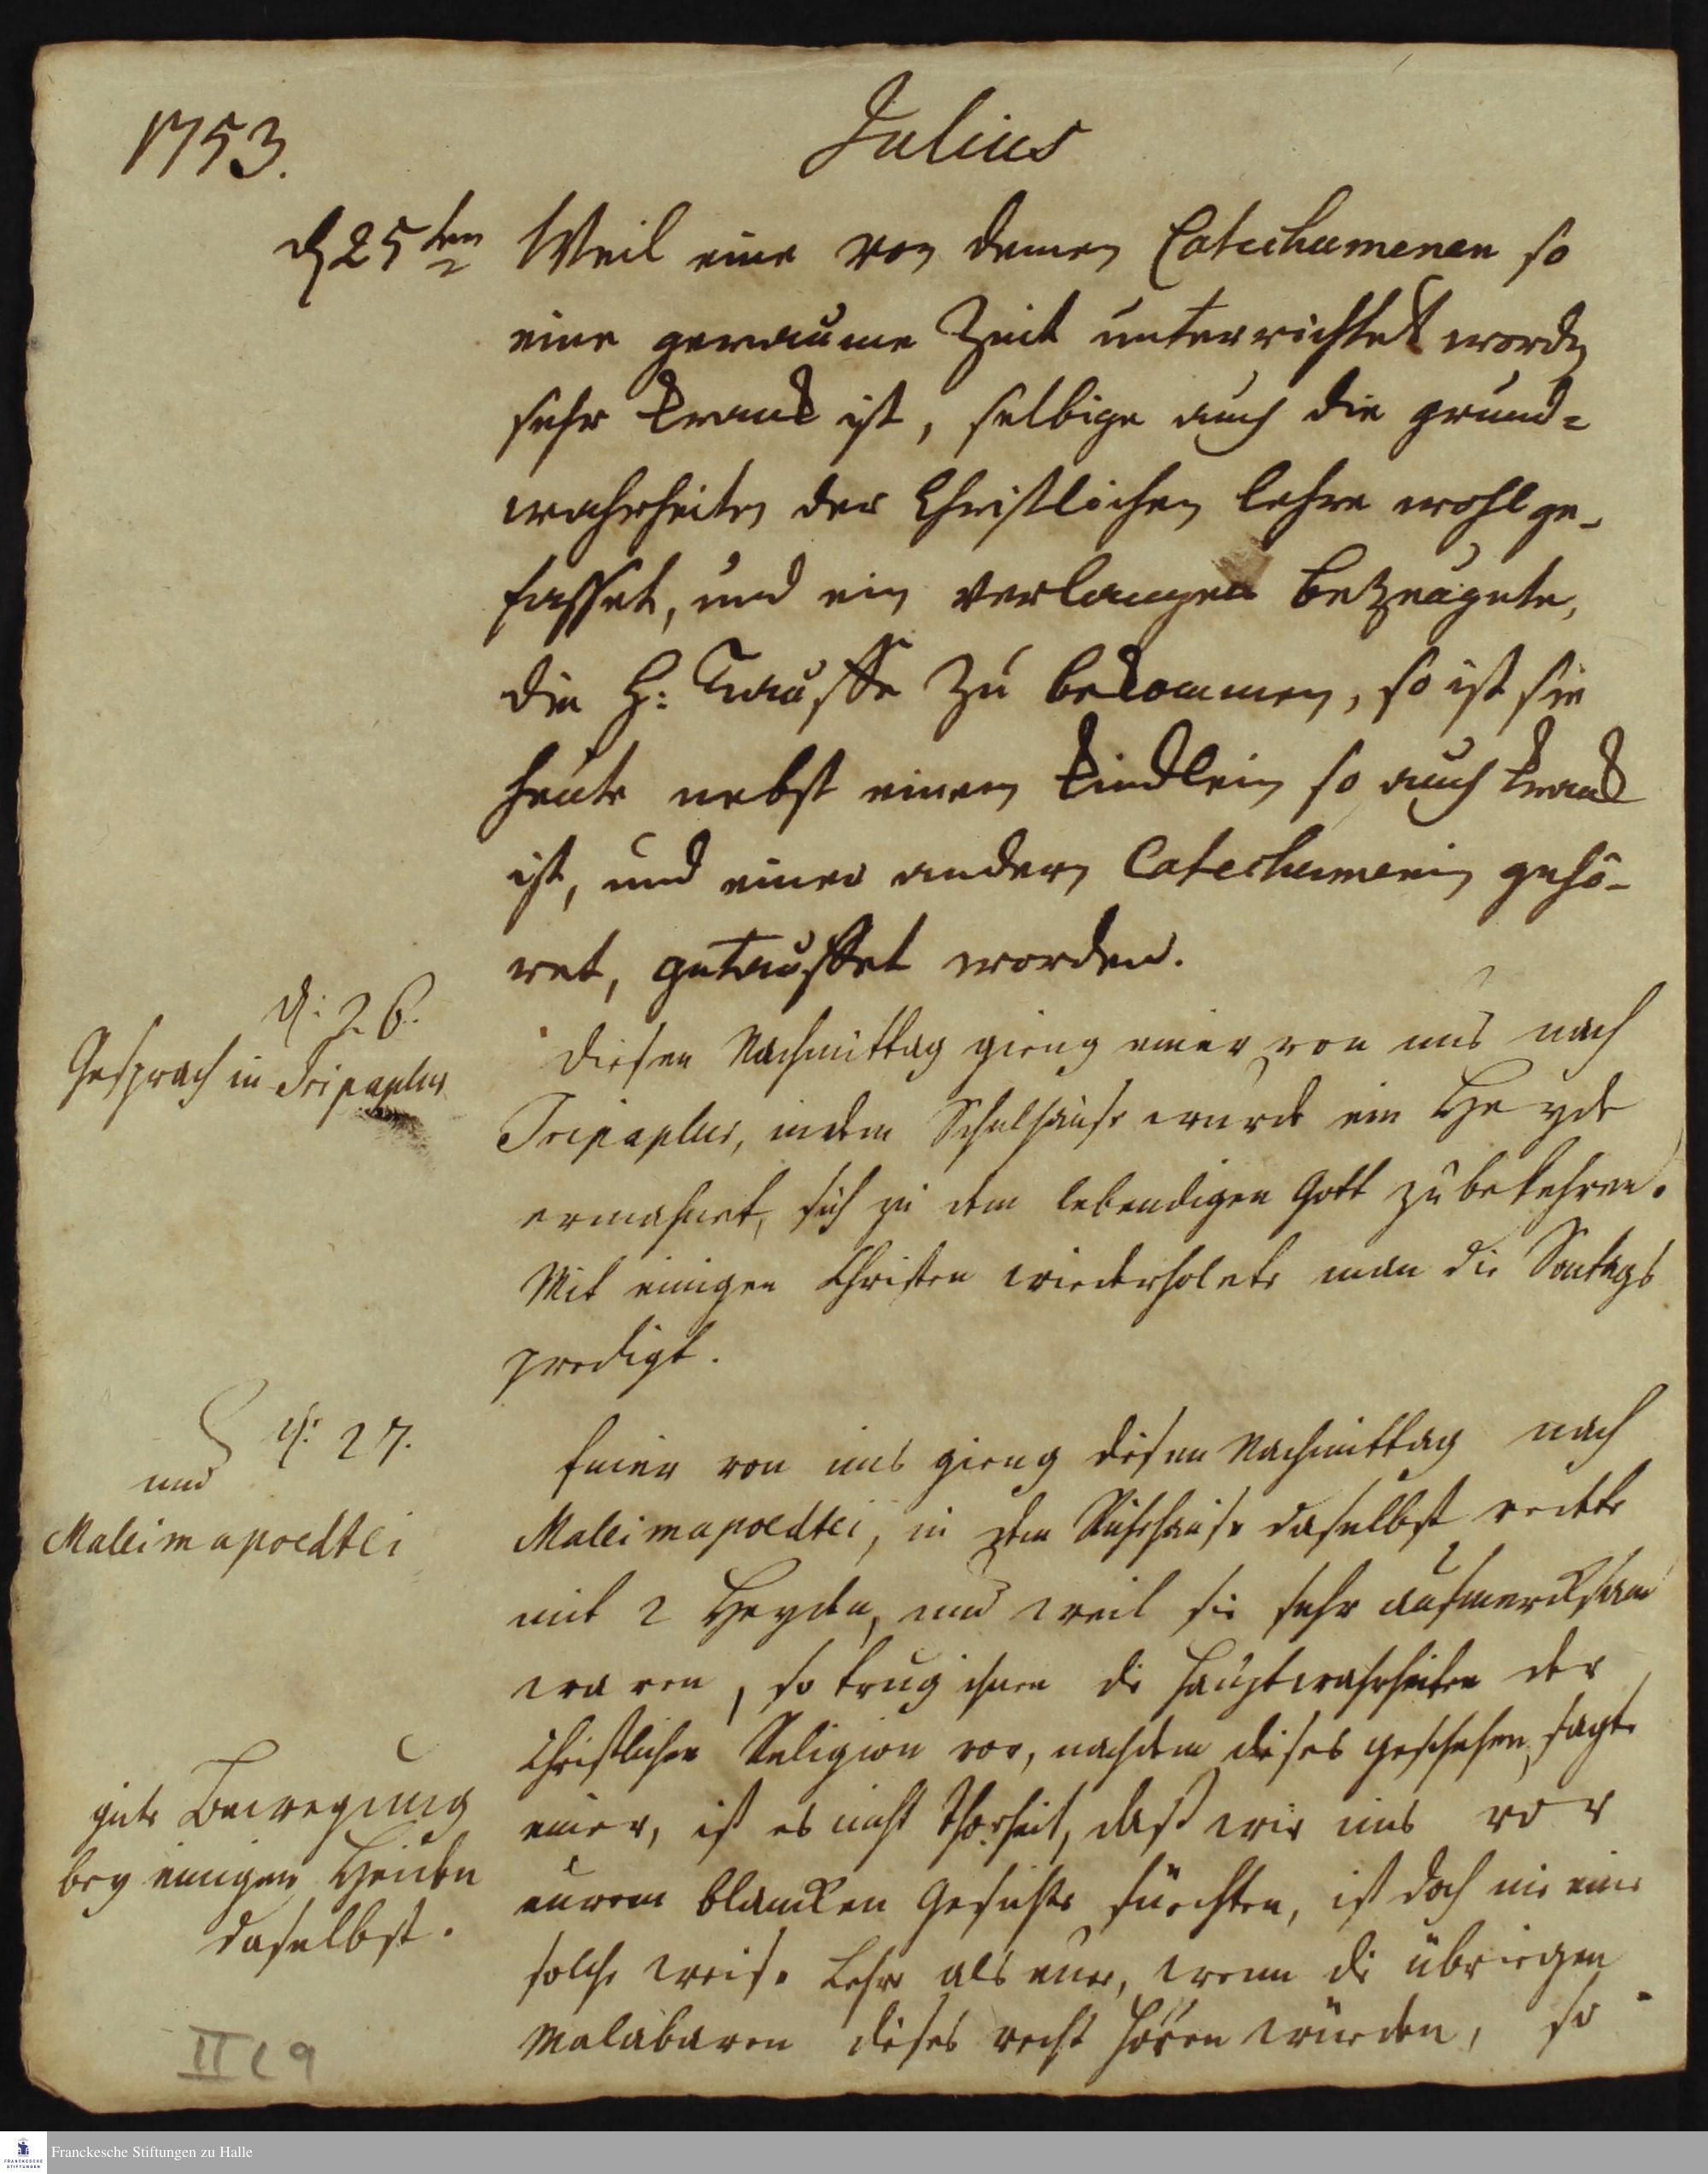 1753.
Julius
d 25ten
Weil eine von denen Catechumenen so
eine geraume Zeit unterrichtet worden
sehr kranck ist, selbige auch die grund=
wahrheiten der Christlichen lehre wohl ge-
fasset, und ein verlangen bezeugete,
die H: Tauffe zu bekommen, so ist sie
heute nebst einem kindlein so auch kranck
ist, und einer andern Catechumenin gehö-
ret, getauffet worden.
d: 26.
Gespräch in Tripaplur
Diesen Nachmittag gieng einer von uns nach
Tripaplur, in dem Schulhause wurde ein Heyde
ermahnet, sich zu dem lebendigen Gott zu bekehren.
Mit einigen Christen wiederholete man die Sontags
predigt.
d: 27.
und
Maleimapoedtei
Einer von uns gieng diesen Nachmittag nach
Maleimapoedtei, in dem Ruhehause daselbst redete
mit 2 Heyden, und weil sie sehr aufmercksam
waren, so trug ihnen die Hauptwahrheiten der
Christlichen Religion vor, nachdem dieses geschehen, sagte
einer, ist es nicht Thorheit, daß wir uns vor
eurem blancken Gesichte fürchten, ist doch nie eine
solche weise Lehre als eure, wenn die übriegen
Malabaren dieses recht hören würden, so
gute Bewegung
bey einigen Heiden
daselbst.
II C 9
Franckesche Stiftungen zu Halle
FRANCKESCHE
STIFTUNGEN